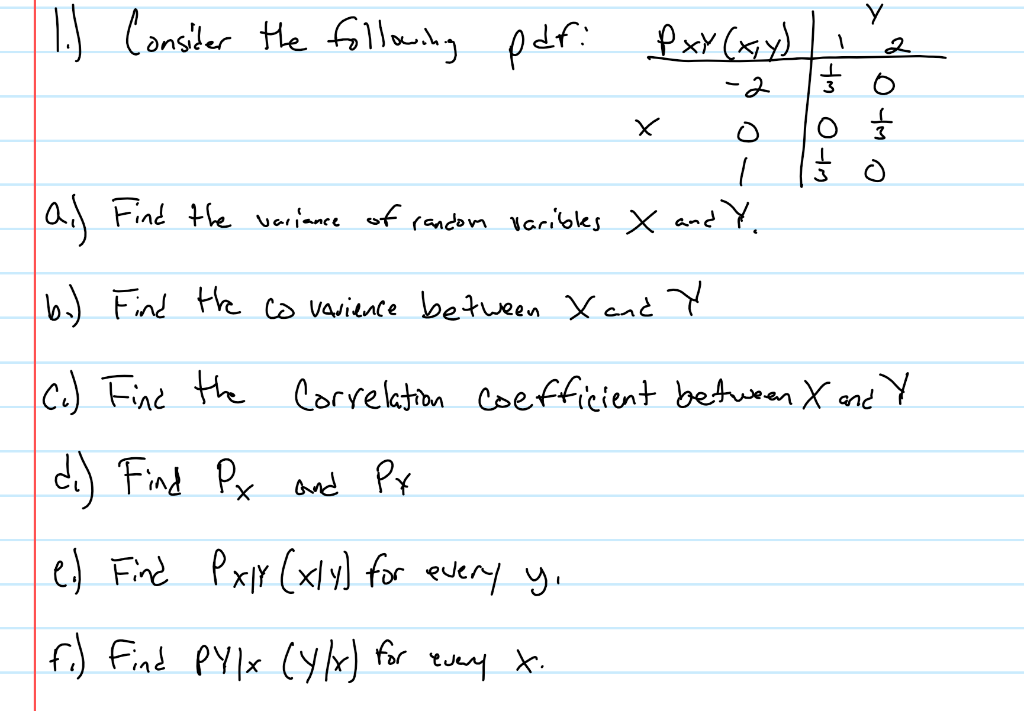 1.) Consider the following pdf: PXY(x,y) | 1 Y 2
-2 | 1/3 0
X 0 | 0 1/3
1 | 1/3 0
a.) Find the variance of random varibles X and Y.
b.) Find the covarience between X and Y
c.) Find the Correlation coefficient between X and Y
d.) Find PX and PY
e.) Find PX|Y (x|y) for every y.
f.) Find PY|x (y|x) for every x.